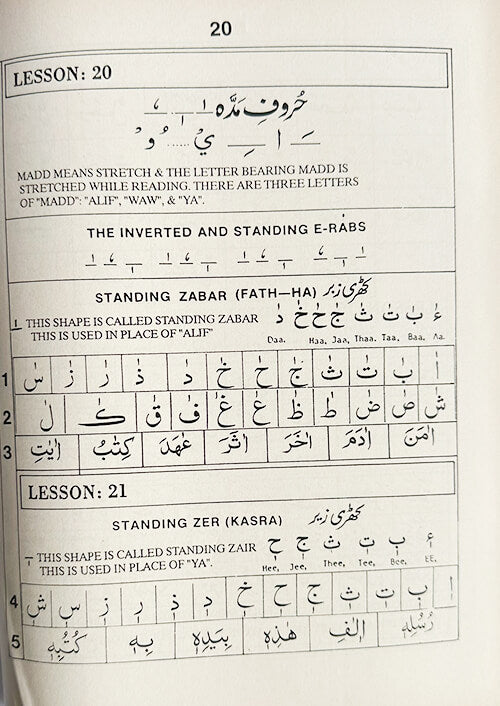 20
LESSON: 20
حُروفِ مَدَّه
MADD MEANS STRETCH & THE LETTER BEARING MADD IS
STRETCHED WHILE READING. THERE ARE THREE LETTERS
OF "MADD": "ALIF", "WAW", & "YA".
THE INVERTED AND STANDING E-RABS
STANDING ZABAR (FATH—HA) کھڑی زبر
THIS SHAPE IS CALLED STANDING ZABAR
THIS IS USED IN PLACE OF "ALIF"
ءٰ بٰ تٰ ثٰ جٰ حٰ خٰ دٰ
Daa. Haa, Jaa, Thaa. Taa. Baa, Aa.
1 اٰ بٰ تٰ ثٰ جٰ حٰ خٰ دٰ ذٰ رٰ زٰ سٰ
2 شٰ صٰ ضٰ طٰ ظٰ عٰ غٰ فٰ قٰ كٰ لٰ
3 اٰمَنَ اٰدَمَ اٰخَرَ اٰثَرَ عٰهَدَ كِتٰبُ اٰيٰتِ
LESSON: 21
STANDING ZER (KASRA) کھڑی زیر
THIS SHAPE IS CALLED STANDING ZAIR
THIS IS USED IN PLACE OF "YA".
ءٖ بٖ تٖ ثٖ جٖ حٖ
Hee, Jee, Thee, Tee, Bee, EE,
4 اٖ بٖ تٖ ثٖ جٖ حٖ خٖ دٖ ذٖ رٖ زٖ سٖ شٖ
5 رُسُلِهٖ اٖلٰفِ هٰذِهٖ بِيَدِهٖ بِهٖ كُتُبِهٖ